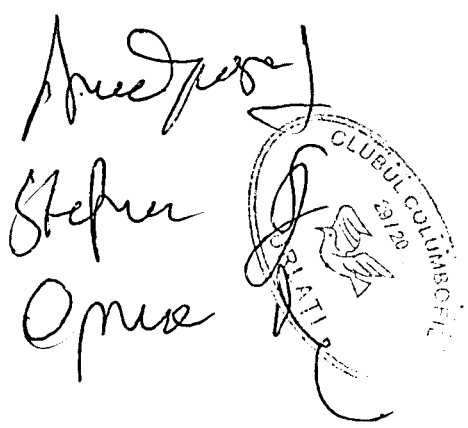 Stefan
Oprea
CLUBUL COLUMBOFIL
29/20
URLATI